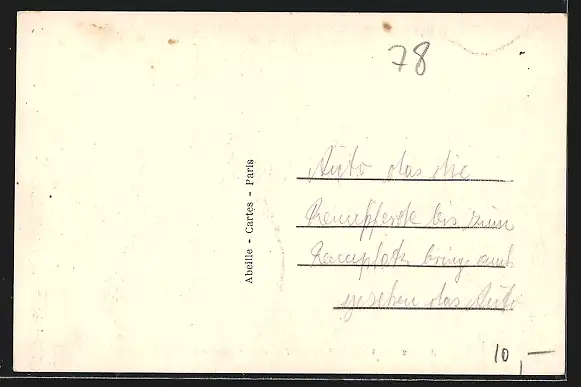 78
Abeille - Cartes - Paris
Auto das die
Rennpferde bis zum
Rennplatz bringt auch
gesehen das Auto
10,-